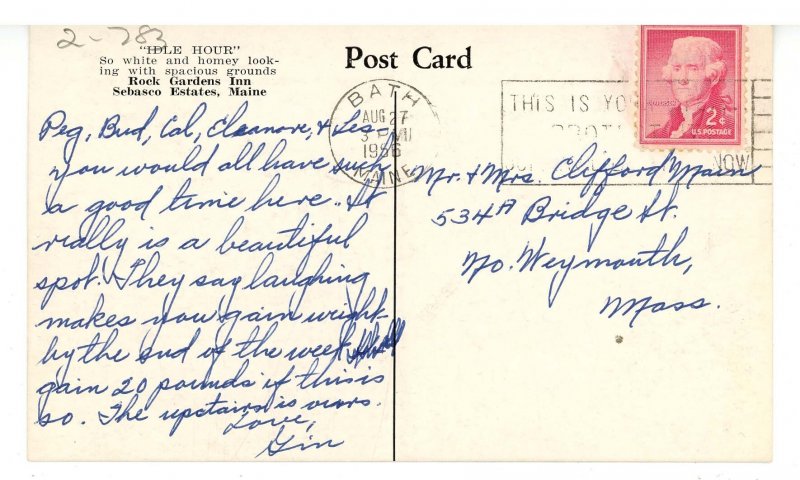 2-783
"IDLE HOUR"
So white and homey look-
ing with spacious grounds
Rock Gardens Inn
Sebasco Estates, Maine
Post Card
BATH
AUG 27
3 PM
1956
MAINE
THIS IS YO
NOW
2¢
U.S. POSTAGE
Peg, Bud, Cal, Eleanore, & Les
You would all have such
a good time here. It
really is a beautiful
spot. They say laughing
makes you gain weight
by the end of the week I shall
gain 20 pounds if this is
so. The upstairs is ours.
Love,
Gin
Mr. & Mrs. Clifford Main
534A Bridge St.
No. Weymouth,
Mass.